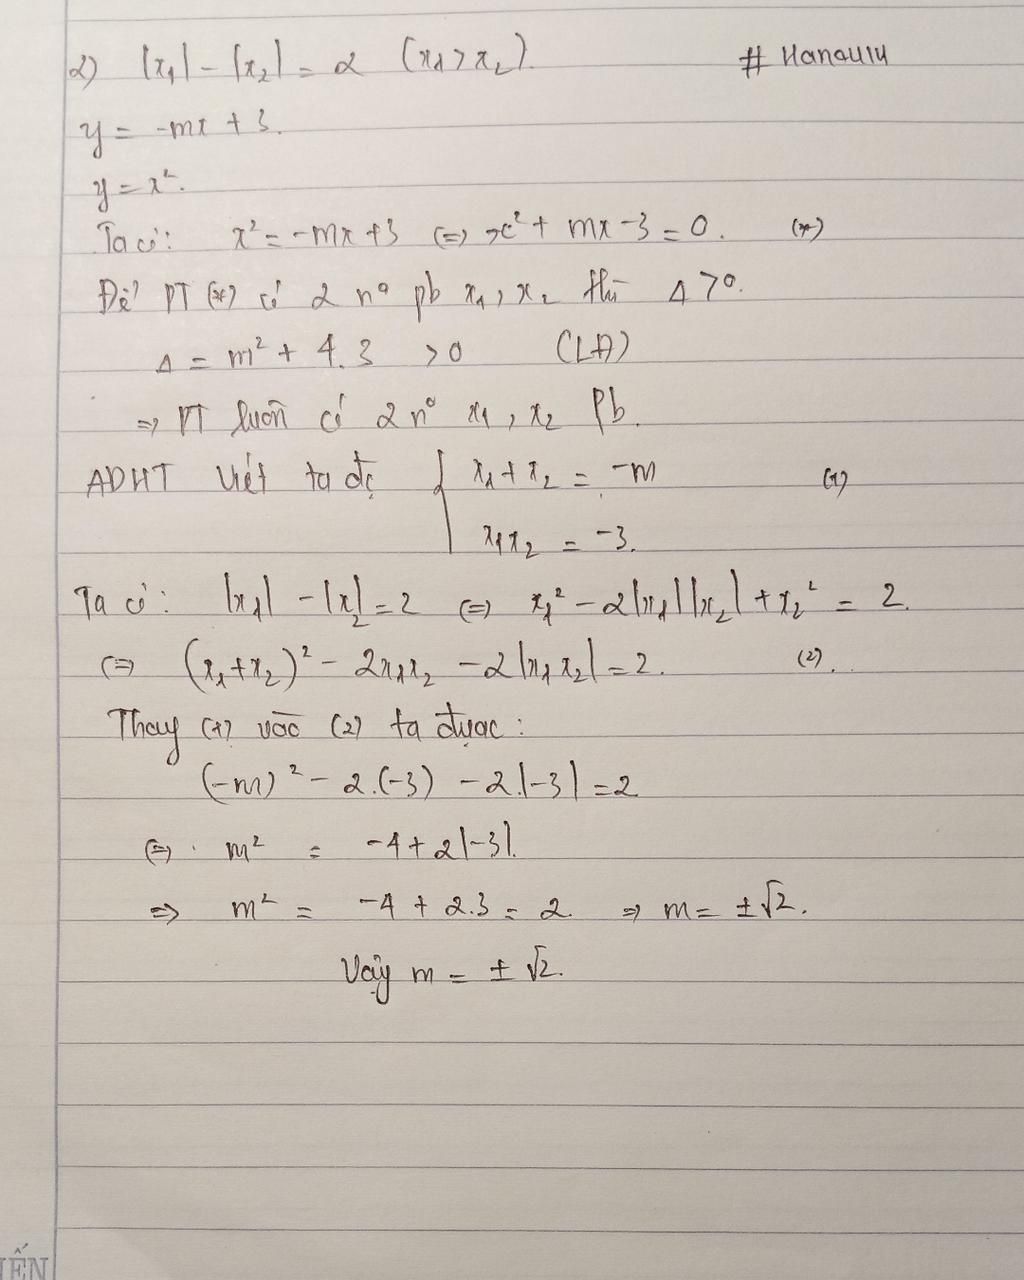 2) |x₁| - |x₂| = 2 (x₁ > x₂). # Hanauly
y = -mx + 3.
y = x².
Ta có: x² = -mx + 3 (=) x² + mx - 3 = 0. (*)
Để PT (*) có 2 n⁰ pb x₁, x₂ thì Δ > 0.
Δ = m² + 4.3 > 0 (LĐ)
=> PT luôn có 2 n⁰ x₁, x₂ pb.
ADHT Viét ta đc { x₁ + x₂ = -m (1)
x₁x₂ = -3.
Ta có: |x₁| - |x₂| = 2 (=) x₁² - 2|x₁||x₂| + x₂² = 2.
(=) (x₁ + x₂)² - 2x₁x₂ - 2|x₁x₂| = 2. (2).
Thay (1) vào (2) ta được:
(-m)² - 2.(-3) - 2.|-3| = 2
(=) m² = -4 + 2|-3|.
=> m² = -4 + 2.3 = 2. => m = ±√2.
Vậy m = ±√2.
ẾN